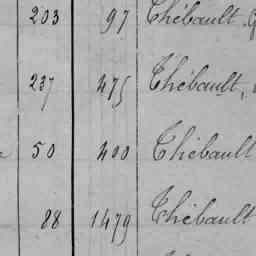 203 97 Thébault
237 475 Thébault,
50 400 Thébault
88 1479 Thébault